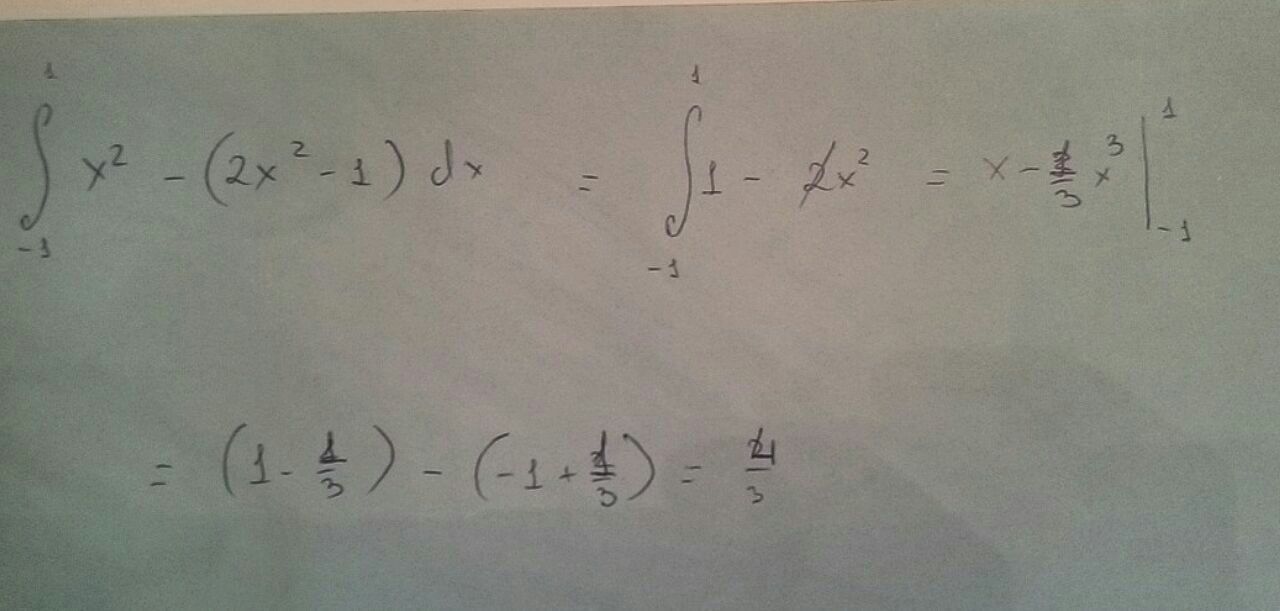 ∫₋₁¹ x² - (2x² - 1) dx = ∫₋₁¹ 1 - x² = x - 1/3 x³ |₋₁¹
= (1 - 1/3) - (-1 + 1/3) = 4/3